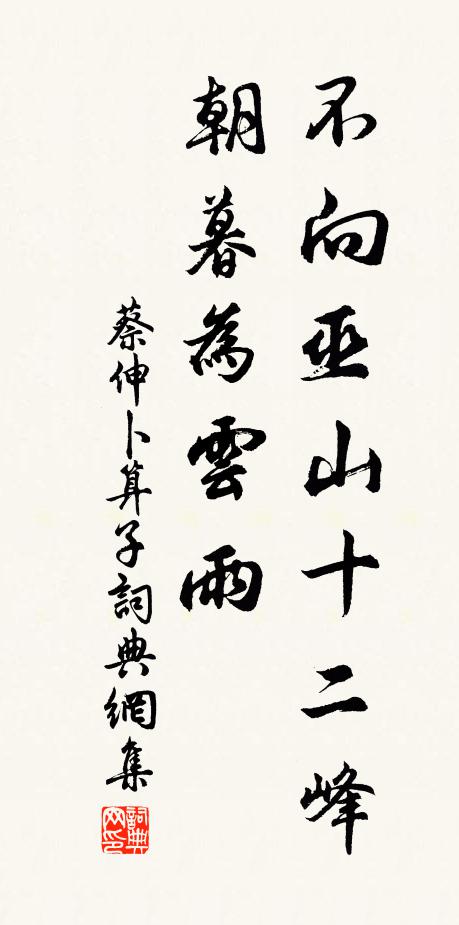 不向巫山十二峰
朝暮為雲雨
蔡伸卜算子詞典網集
詞典网印